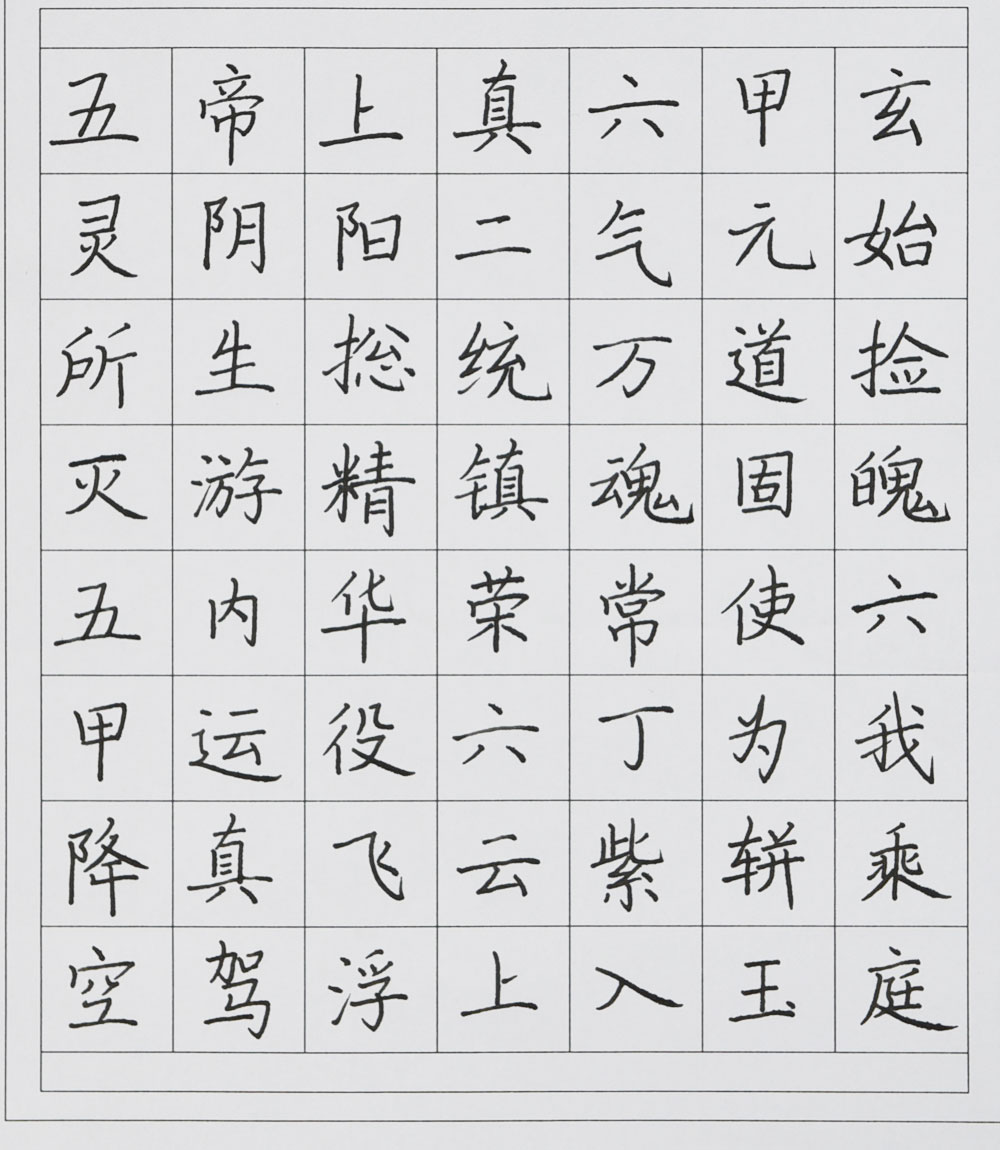 五帝上真六甲玄
灵阴阳二气元始
所生捴统万道捡
灭游精镇魂固魄
五内华荣常使六
甲运役六丁为我
降真飞云紫軿乘
空驾浮上入玉庭